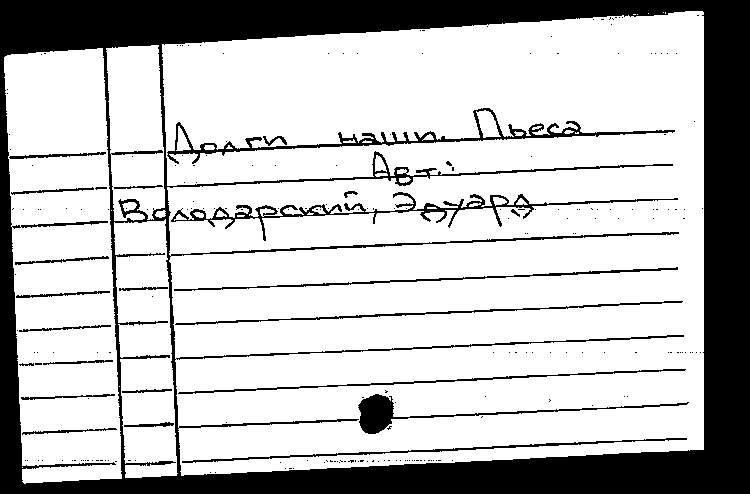 Долги наши. Пьеса
Авт.:
Володарский, Эдуард